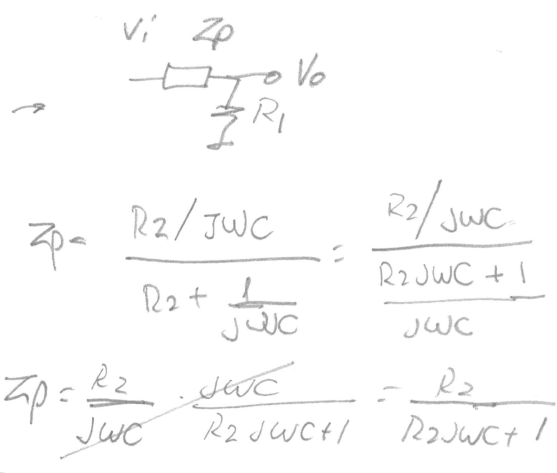 Vi Zp
Vo
→ R1
Zp = R2/JWC / (R2 + 1/JWC) = R2/JWC / ((R2JWC + 1)/JWC)
Zp = R2/JWC · JWC/(R2JWC+1) = R2/(R2JWC+1)